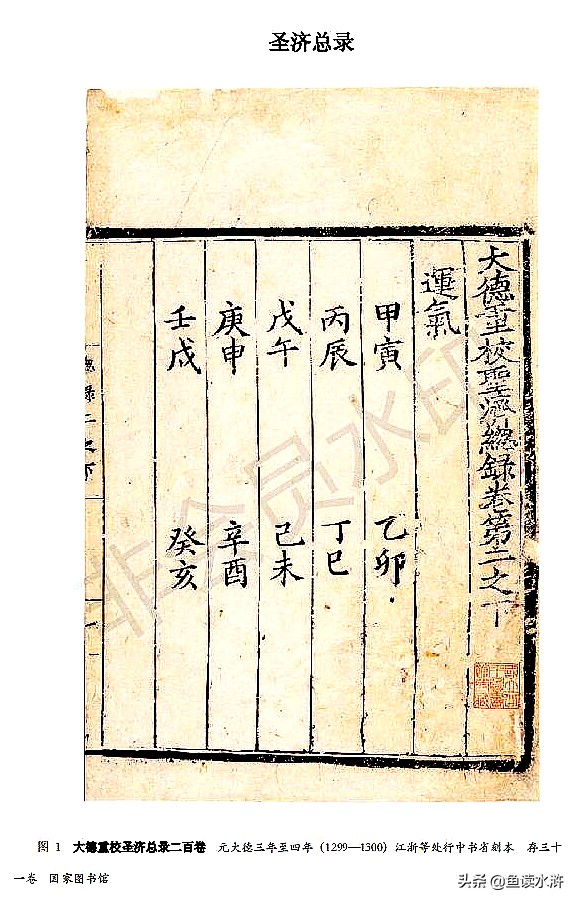 圣济总录
大德重校聖濟緫録卷第二之下
運氣
甲寅 乙卯
丙辰 丁巳
戊午 己未
庚申 辛酉
壬戌 癸亥
録二之下
非会员水印
图 1 大德重校圣济总录二百卷 元大德三年至四年（1299—1300）江浙等处行中书省刻本 存三十
一卷 国家图书馆
头条 @鱼读水浒